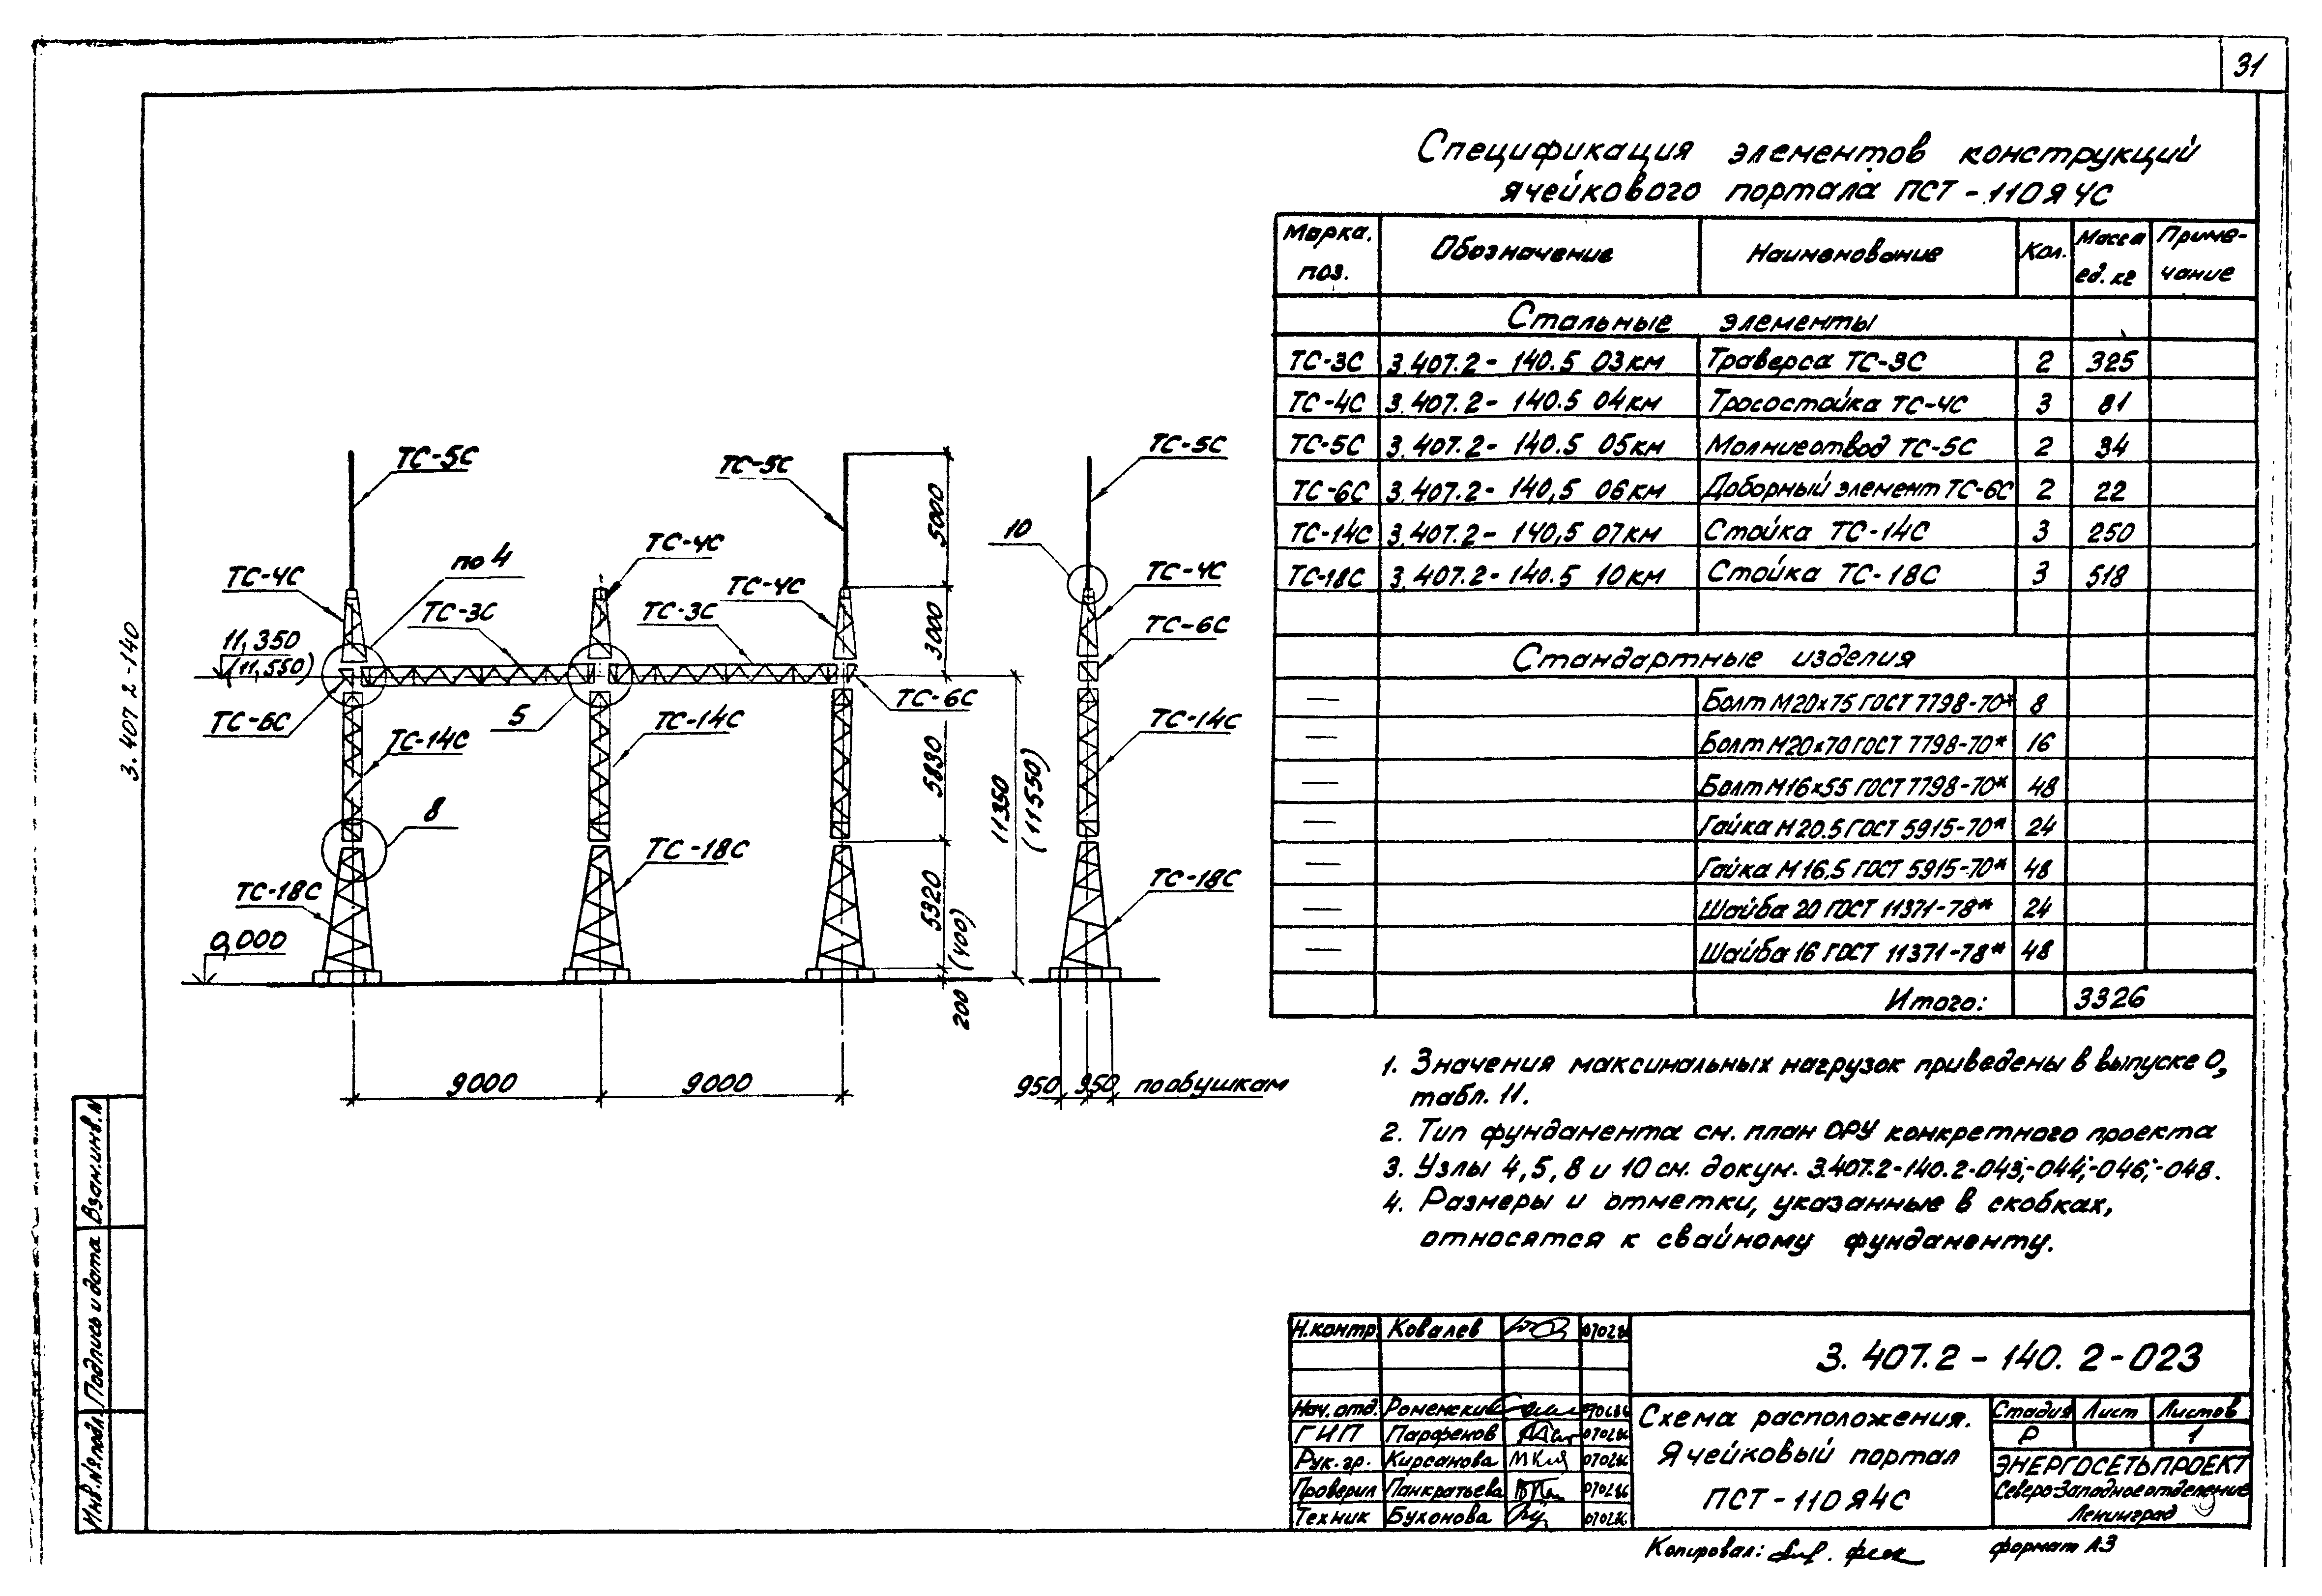 31
Спецификация элементов конструкций
ячейкового портала ПСТ-110Я4С
Марка. поз. Обозначение Наименование Кол. Масса ед. кг Приме-чание
Стальные элементы
ТС-3С 3.407.2-140.5 03КМ Траверса ТС-3С 2 325
ТС-4С 3.407.2-140.5 04КМ Тросостойка ТС-4С 3 81
ТС-5С 3.407.2-140.5 05КМ Молниеотвод ТС-5С 2 34
ТС-6С 3.407.2-140,5 06КМ Доборный элемент ТС-6С 2 22
ТС-14С 3.407.2-140,5 07КМ Стойка ТС-14С 3 250
ТС-18С 3.407.2-140.5 10КМ Стойка ТС-18С 3 518
Стандартные изделия
— Болт М20х75 ГОСТ 7798-70* 8
— Болт М20х70 ГОСТ 7798-70* 16
— Болт М16х55 ГОСТ 7798-70* 48
— Гайка М20.5 ГОСТ 5915-70* 24
— Гайка М16.5 ГОСТ 5915-70* 48
— Шайба 20 ГОСТ 11371-78* 24
— Шайба 16 ГОСТ 11371-78* 48
Итого: 3326
ТС-5С
ТС-5С
ТС-5С
5000
10
ТС-4С
по 4
ТС-4С
ТС-4С
ТС-4С
ТС-3С
ТС-3С
3000
ТС-6С
11,350
(11,550)
ТС-6С
5
ТС-6С
ТС-14С
ТС-14С
ТС-14С
5830
11350
(11550)
8
ТС-18С
ТС-18С
ТС-18С
5320
0,000
200 (400)
9000
9000
950 950 по обушкам
3.407 2-140
1. Значения максимальных нагрузок приведены в выпуске 0,
табл. 11.
2. Тип фундамента см. план ОРУ конкретного проекта
3. Узлы 4,5,8 и 10 см. докум. 3.407.2-140.2-043;-044;-046;-048.
4. Размеры и отметки, указанные в скобках,
относятся к свайному фундаменту.
Взам.инв.N
Подпись и дата
Инв.№подл.
Н.контр. Ковалев
Нач.отд. Роменский
ГИП Парфенов
Рук.гр. Кирсанова
Проверил Панкратьева
Техник Бухонова
3.407.2-140.2-023
Схема расположения.
Ячейковый портал
ПСТ-110Я4С
Стадия Лист Листов
Р 1
ЭНЕРГОСЕТЬПРОЕКТ
Северо-Западное отделение
Ленинград
Копировал:
формат А3